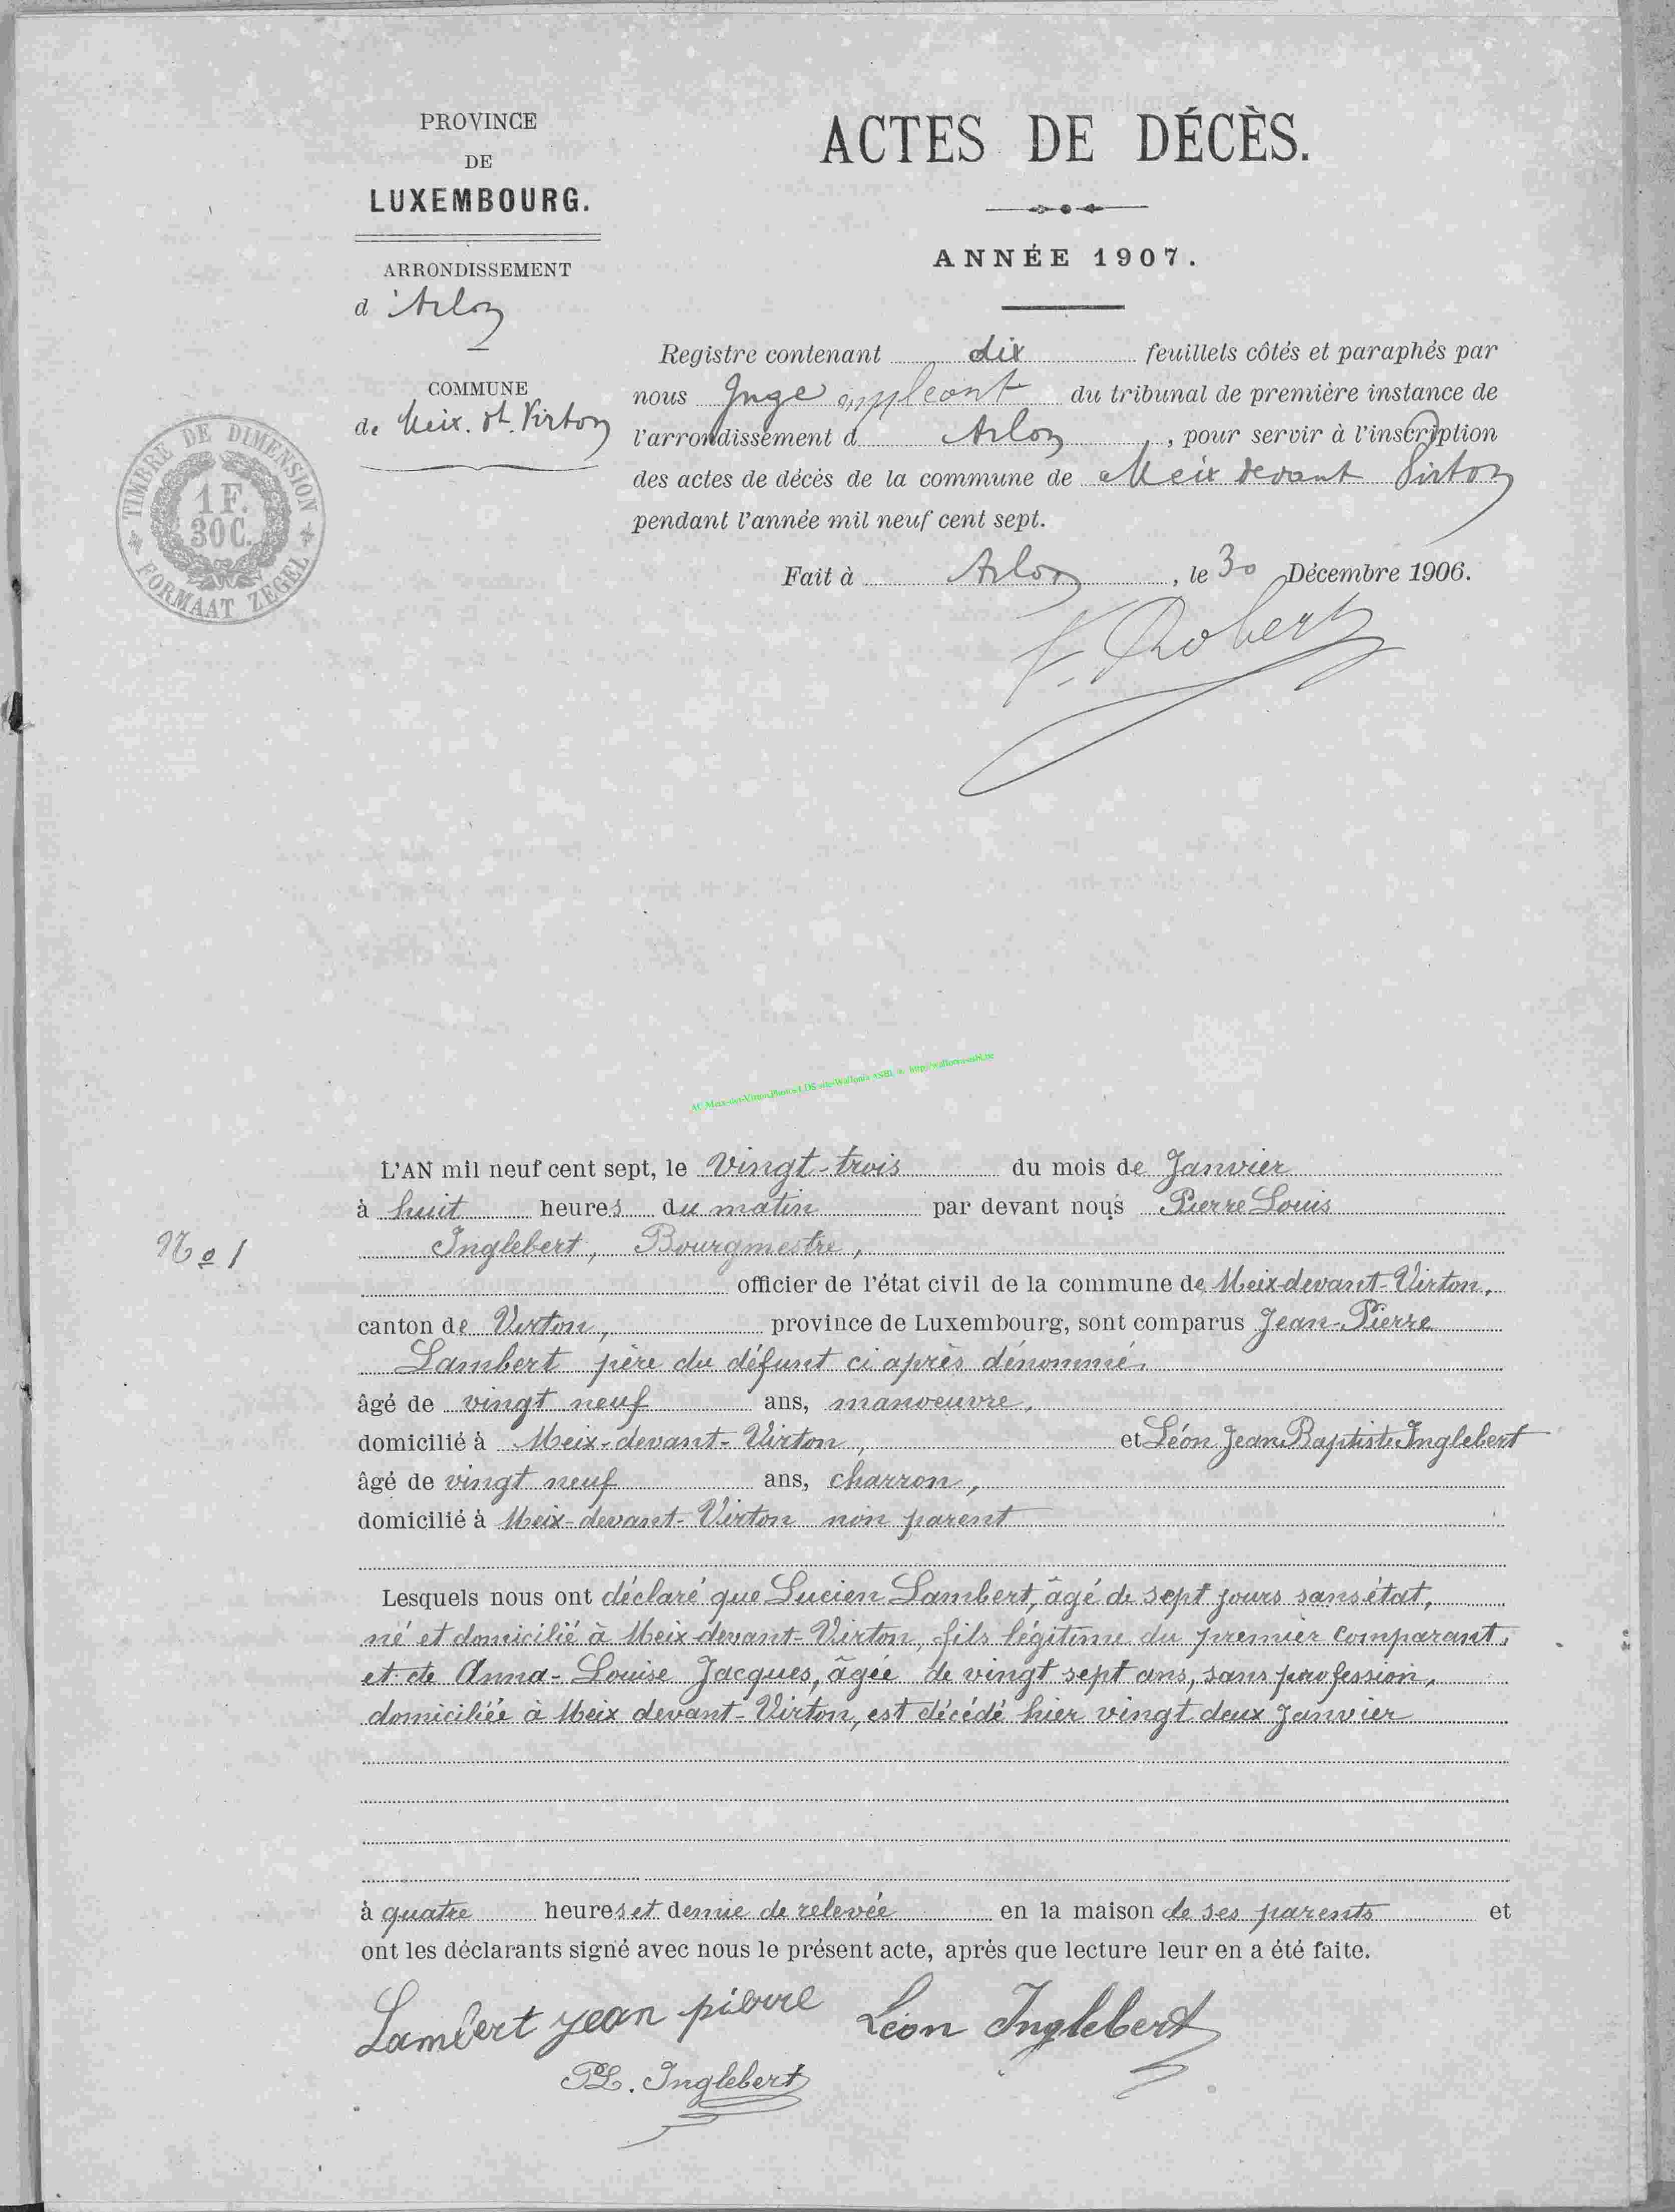 PROVINCE
DE
LUXEMBOURG.
ARRONDISSEMENT
d'Arlon
COMMUNE
de Meix. dt. Virton
TIMBRE DE DIMENSION
1 F.
30 C.
FORMAAT ZEGEL
ACTES DE DÉCÈS.
ANNÉE 1907.
Registre contenant dix feuillets côtés et paraphés par
nous Juge suppléant du tribunal de première instance de
l'arrondissement d Arlon, pour servir à l'inscription
des actes de décès de la commune de Meix devant Virton
pendant l'année mil neuf cent sept.
Fait à Arlon, le 30 Décembre 1906.
L'AN mil neuf cent sept, le vingt-trois du mois de Janvier
à huit heures du matin par devant nous Pierre Louis
No 1
Inglebert, Bourgmestre,
officier de l'état civil de la commune de Meix-devant-Virton,
canton de Virton, province de Luxembourg, sont comparus Jean-Pierre
Lambert père du défunt ci après dénommé,
âgé de vingt neuf ans, manoeuvre,
domicilié à Meix-devant-Virton, et Léon Jean Baptiste Inglebert
âgé de vingt neuf ans, charron,
domicilié à Meix-devant-Virton non parent
Lesquels nous ont déclaré que Lucien Lambert, âgé de sept jours sans état,
né et domicilié à Meix devant-Virton, fils légitime du premier comparant,
et de Anna-Louise Jacques, âgée de vingt sept ans, sans profession,
domiciliée à Meix devant-Virton, est décédé hier vingt deux Janvier
à quatre heures et demie de relevée en la maison de ses parents et
ont les déclarants signé avec nous le présent acte, après que lecture leur en a été faite.
Lambert jean pierre Léon Inglebert
PL. Inglebert